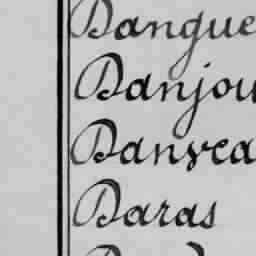 Dangue
Danjou
Danvea
Daras